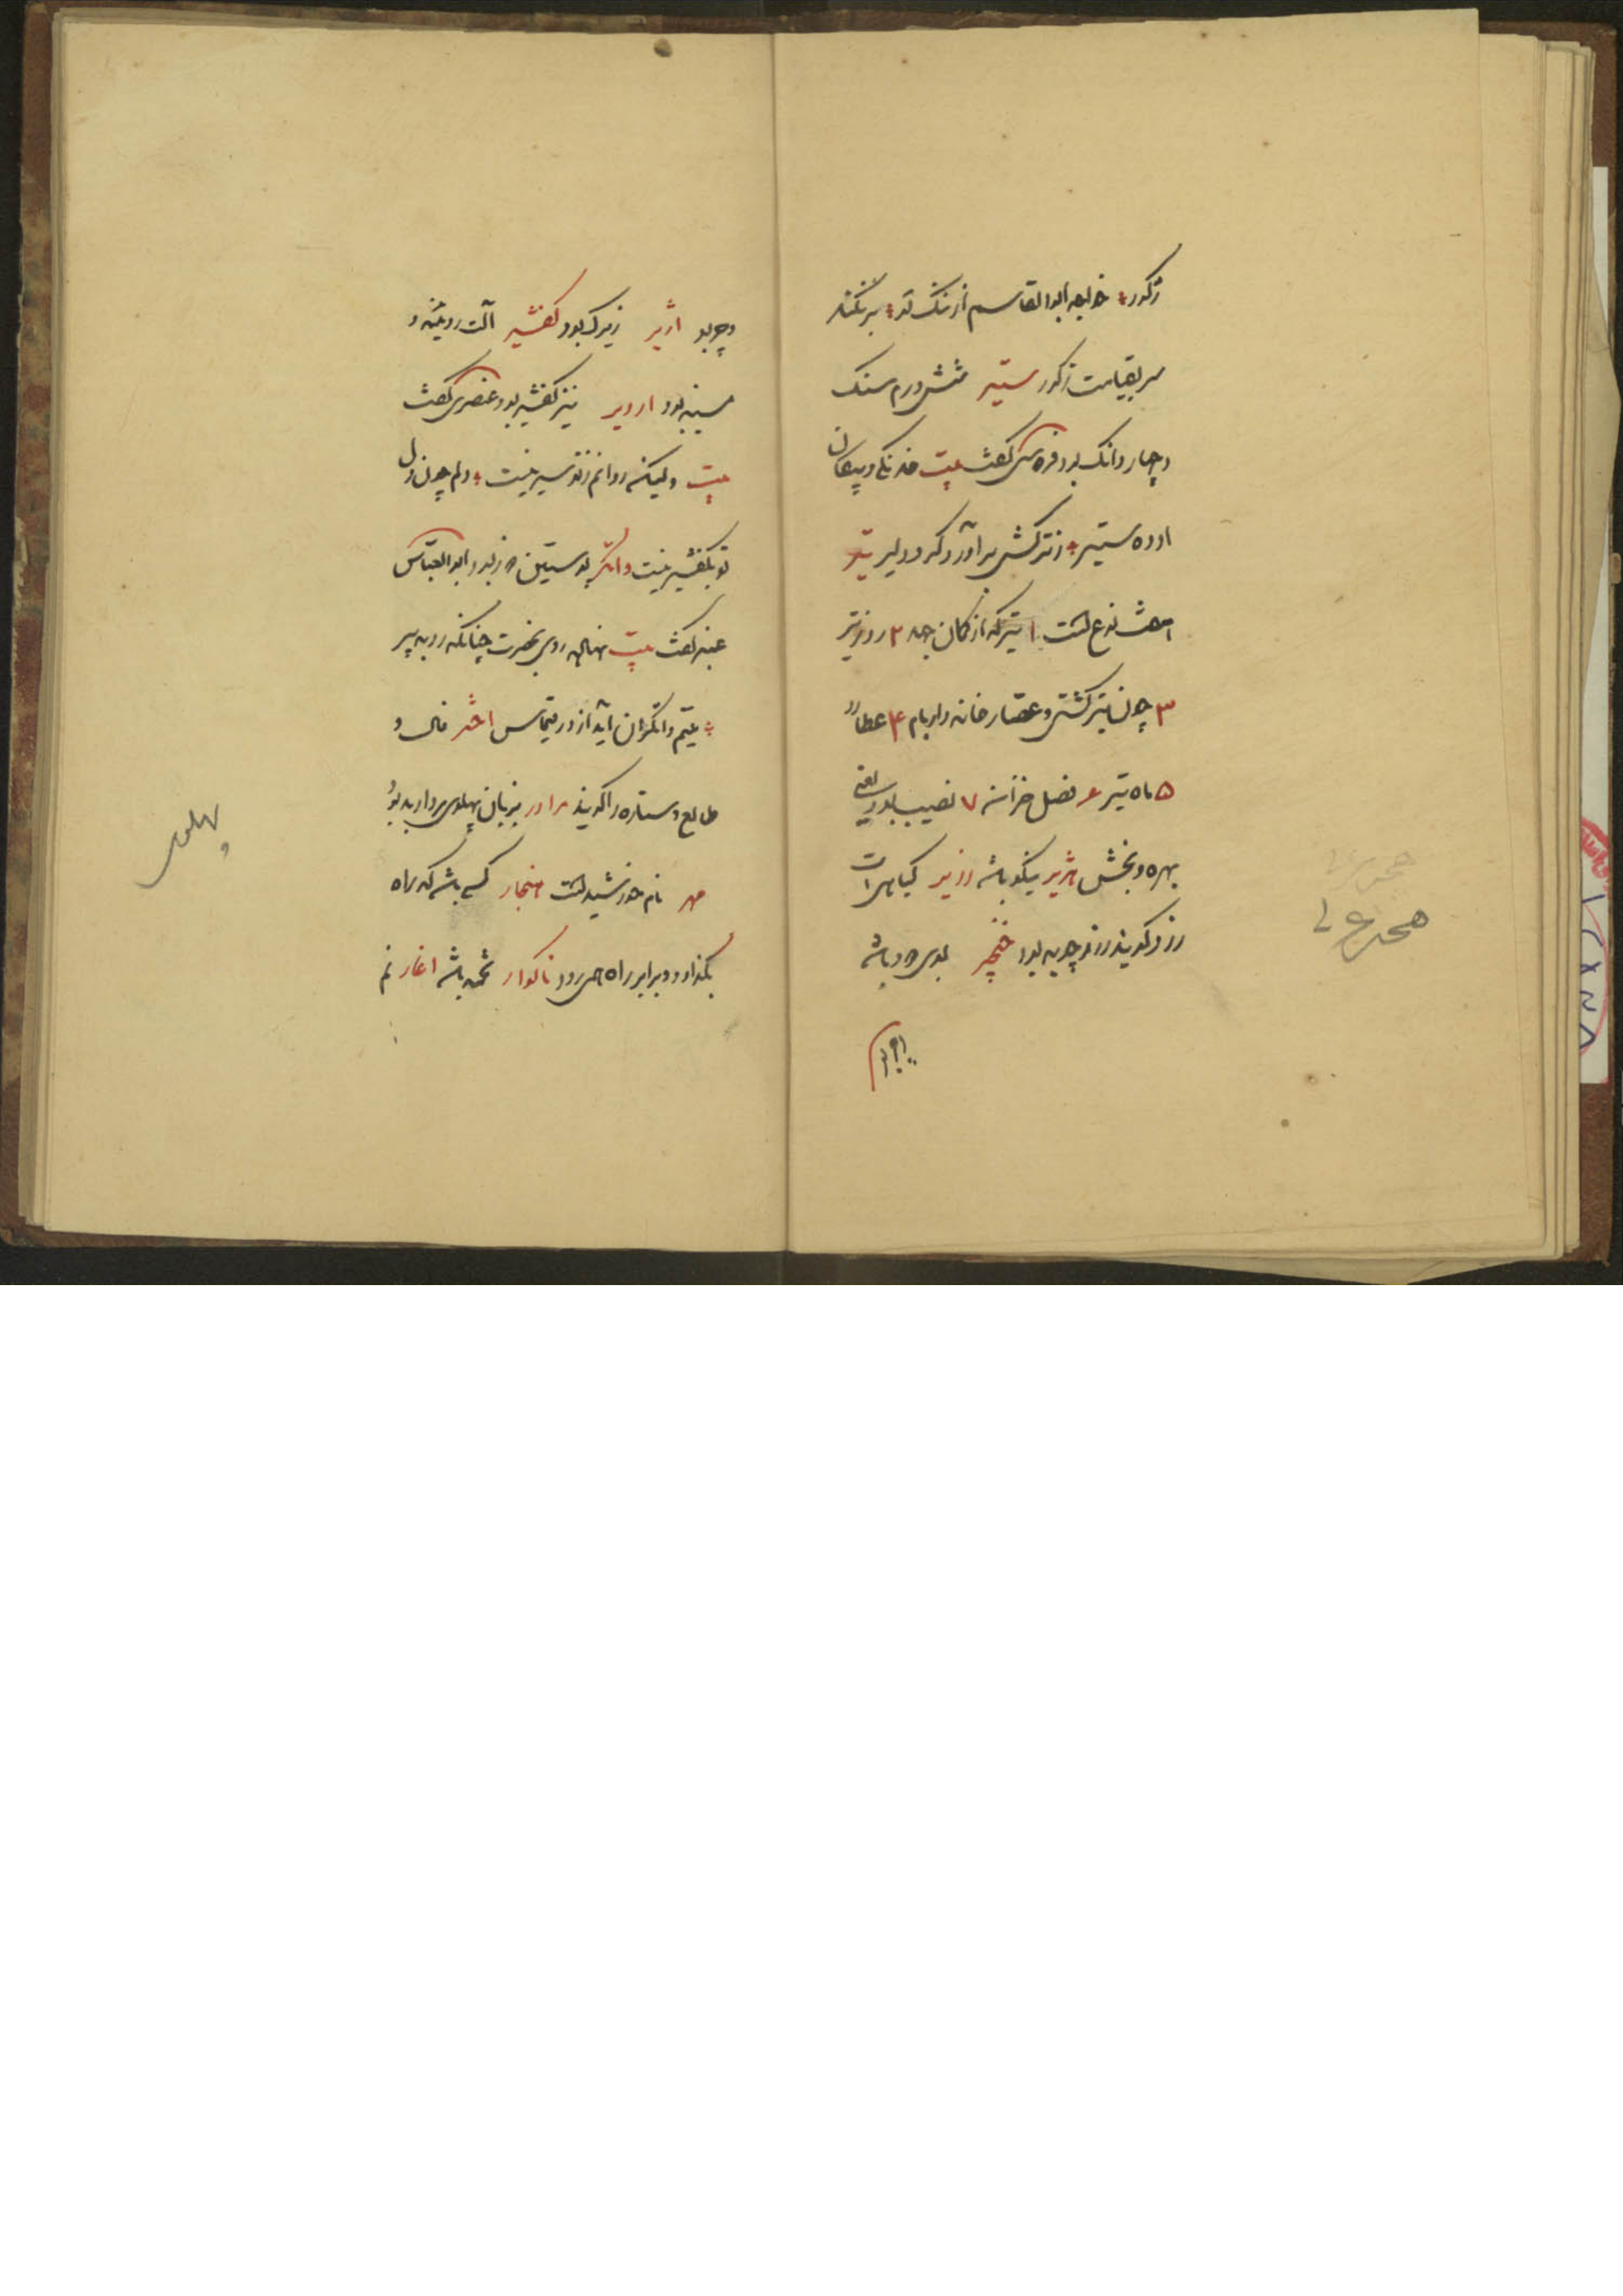 زکور خواجه ابوالقاسم از ننگ تو بر نکند
سر بقیامت ز کور ستیر شش درم سنک
و چهار دانک بود فردوسی کفت بیت خدنکی و پیکان
او ده ستیر ز ترکش بر آورد کرد دلیر تیر
هفت نوع است ۱ تیر که از کمان جهد ۲ روز تیر
۳ چون تیر کشتی و عصار خانه و از بام ۴ عطارد
۵ ماه تیر ۶ فصل خزانه ۷ نصیب بود یعنی
بهره و بخش هژیر نیکو باشد زریر کیاهی است
زرد کویند زرد چوبه بود خنجیر بوی دود باشد
و چربو
و چربو اژیر زیرک بود کفشیر آلت رویینه و
مسینه بود اردیر نیز کفشیر بود عنصری کفت
بیت ولیکن روانم ز تو سیر نیست دلم چون دل
تو بکفشیر نیست واتکر پوستین دوز بود ابوالعباس
عنبر کفت بیت نهالی روی بحضرت چنانکه روبه پیر
بتیم واتکران آید از در تیماس اختر فال و
طالع و ستاره را کویند مرادر بزبان پهلوی برادر بود
مهر نام خورشید است هنجار کسی باشد که راه
بکذارد و برابر راه همی رود ناکوار تخمه باشد اغار نم
پهلوی